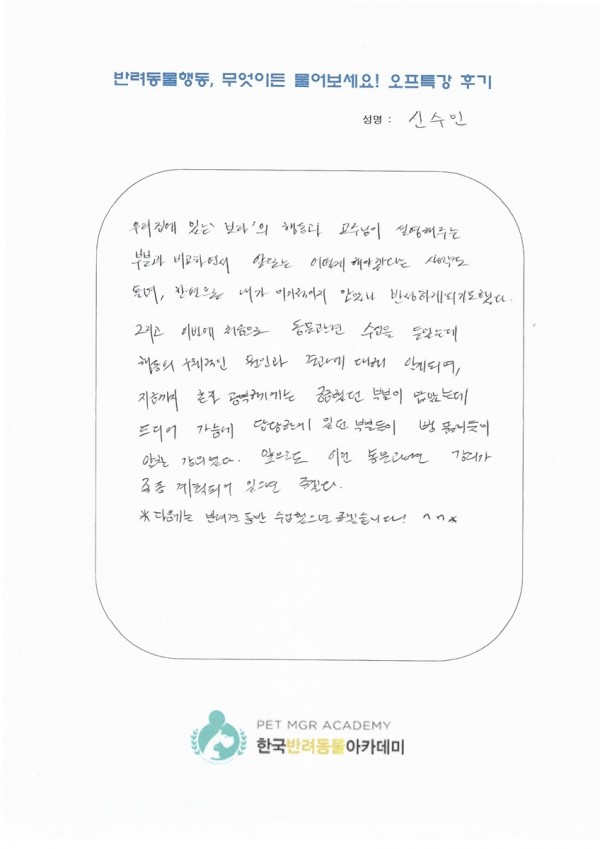 반려동물행동, 무엇이든 물어보세요! 오프특강 후기
성명 : 신수인
우리집에 있는 '보라'의 행동과 교수님이 설명해주는
부분과 비교하면서 앞으로는 어떻게 해야겠다는 생각도
들며, 한편으로 내가 이기적이게 않았나 반성하게되기도했다.
그리고 이번에 처음으로 동물관련 수업을 들었는데
행동의 구체적인 원인과 결과에 대해 알게되며,
지금까지 혼자 공부하기에는 궁금했던 부분이 많았는데
드디어 가슴에 답답하게 있던 부분들이 뻥 뚫리듯이
알찬 강의였다. 앞으로도 이런 동물관련 강의가
종종 계획되어 있으면 좋겠다.
* 다음에는 반려견 동반 수업했으면 좋겠습니다! ^^*
PET MGR ACADEMY
한국반려동물아카데미